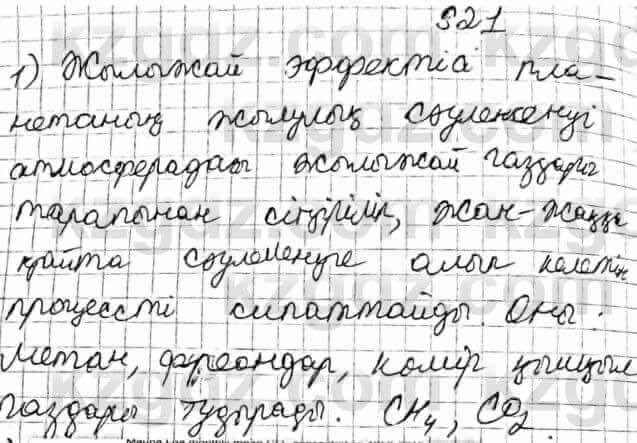 §21
1) Жылыжай эффектісі пла-
нетаның жылулық сәулеленуі
атмосферадағы жылыжай газдары
тарапынан сіңіріліп, жан-жаққа
қайта сәулеленуге алып келетін
процессті сипаттайды. Оны
метан, фреондар, көмір қышқыл
газдары тудырады. CH₄, CO₂